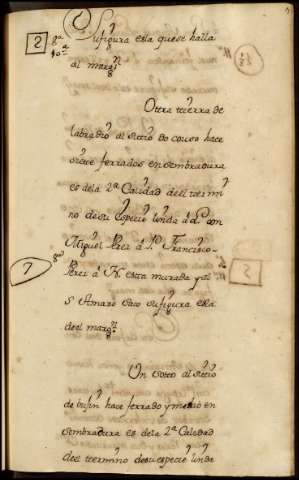 2 8ª 10ª
Su figura es la que se halla
al margn
Otra tierra de
labradio al sitio do couso hace
siete ferrados en sembradura
es de la 2ª Calidad del termi
no de su especie linda a L. con
Miguel Perez á P. Francisco
Perez á N. esta murada y al
S Amaro su figura es la
del margn
7 8ª
Un Soto al sitio
de hace ferrado y medio en
sembradura es de la 2ª Calidad
del termino de su especie linda